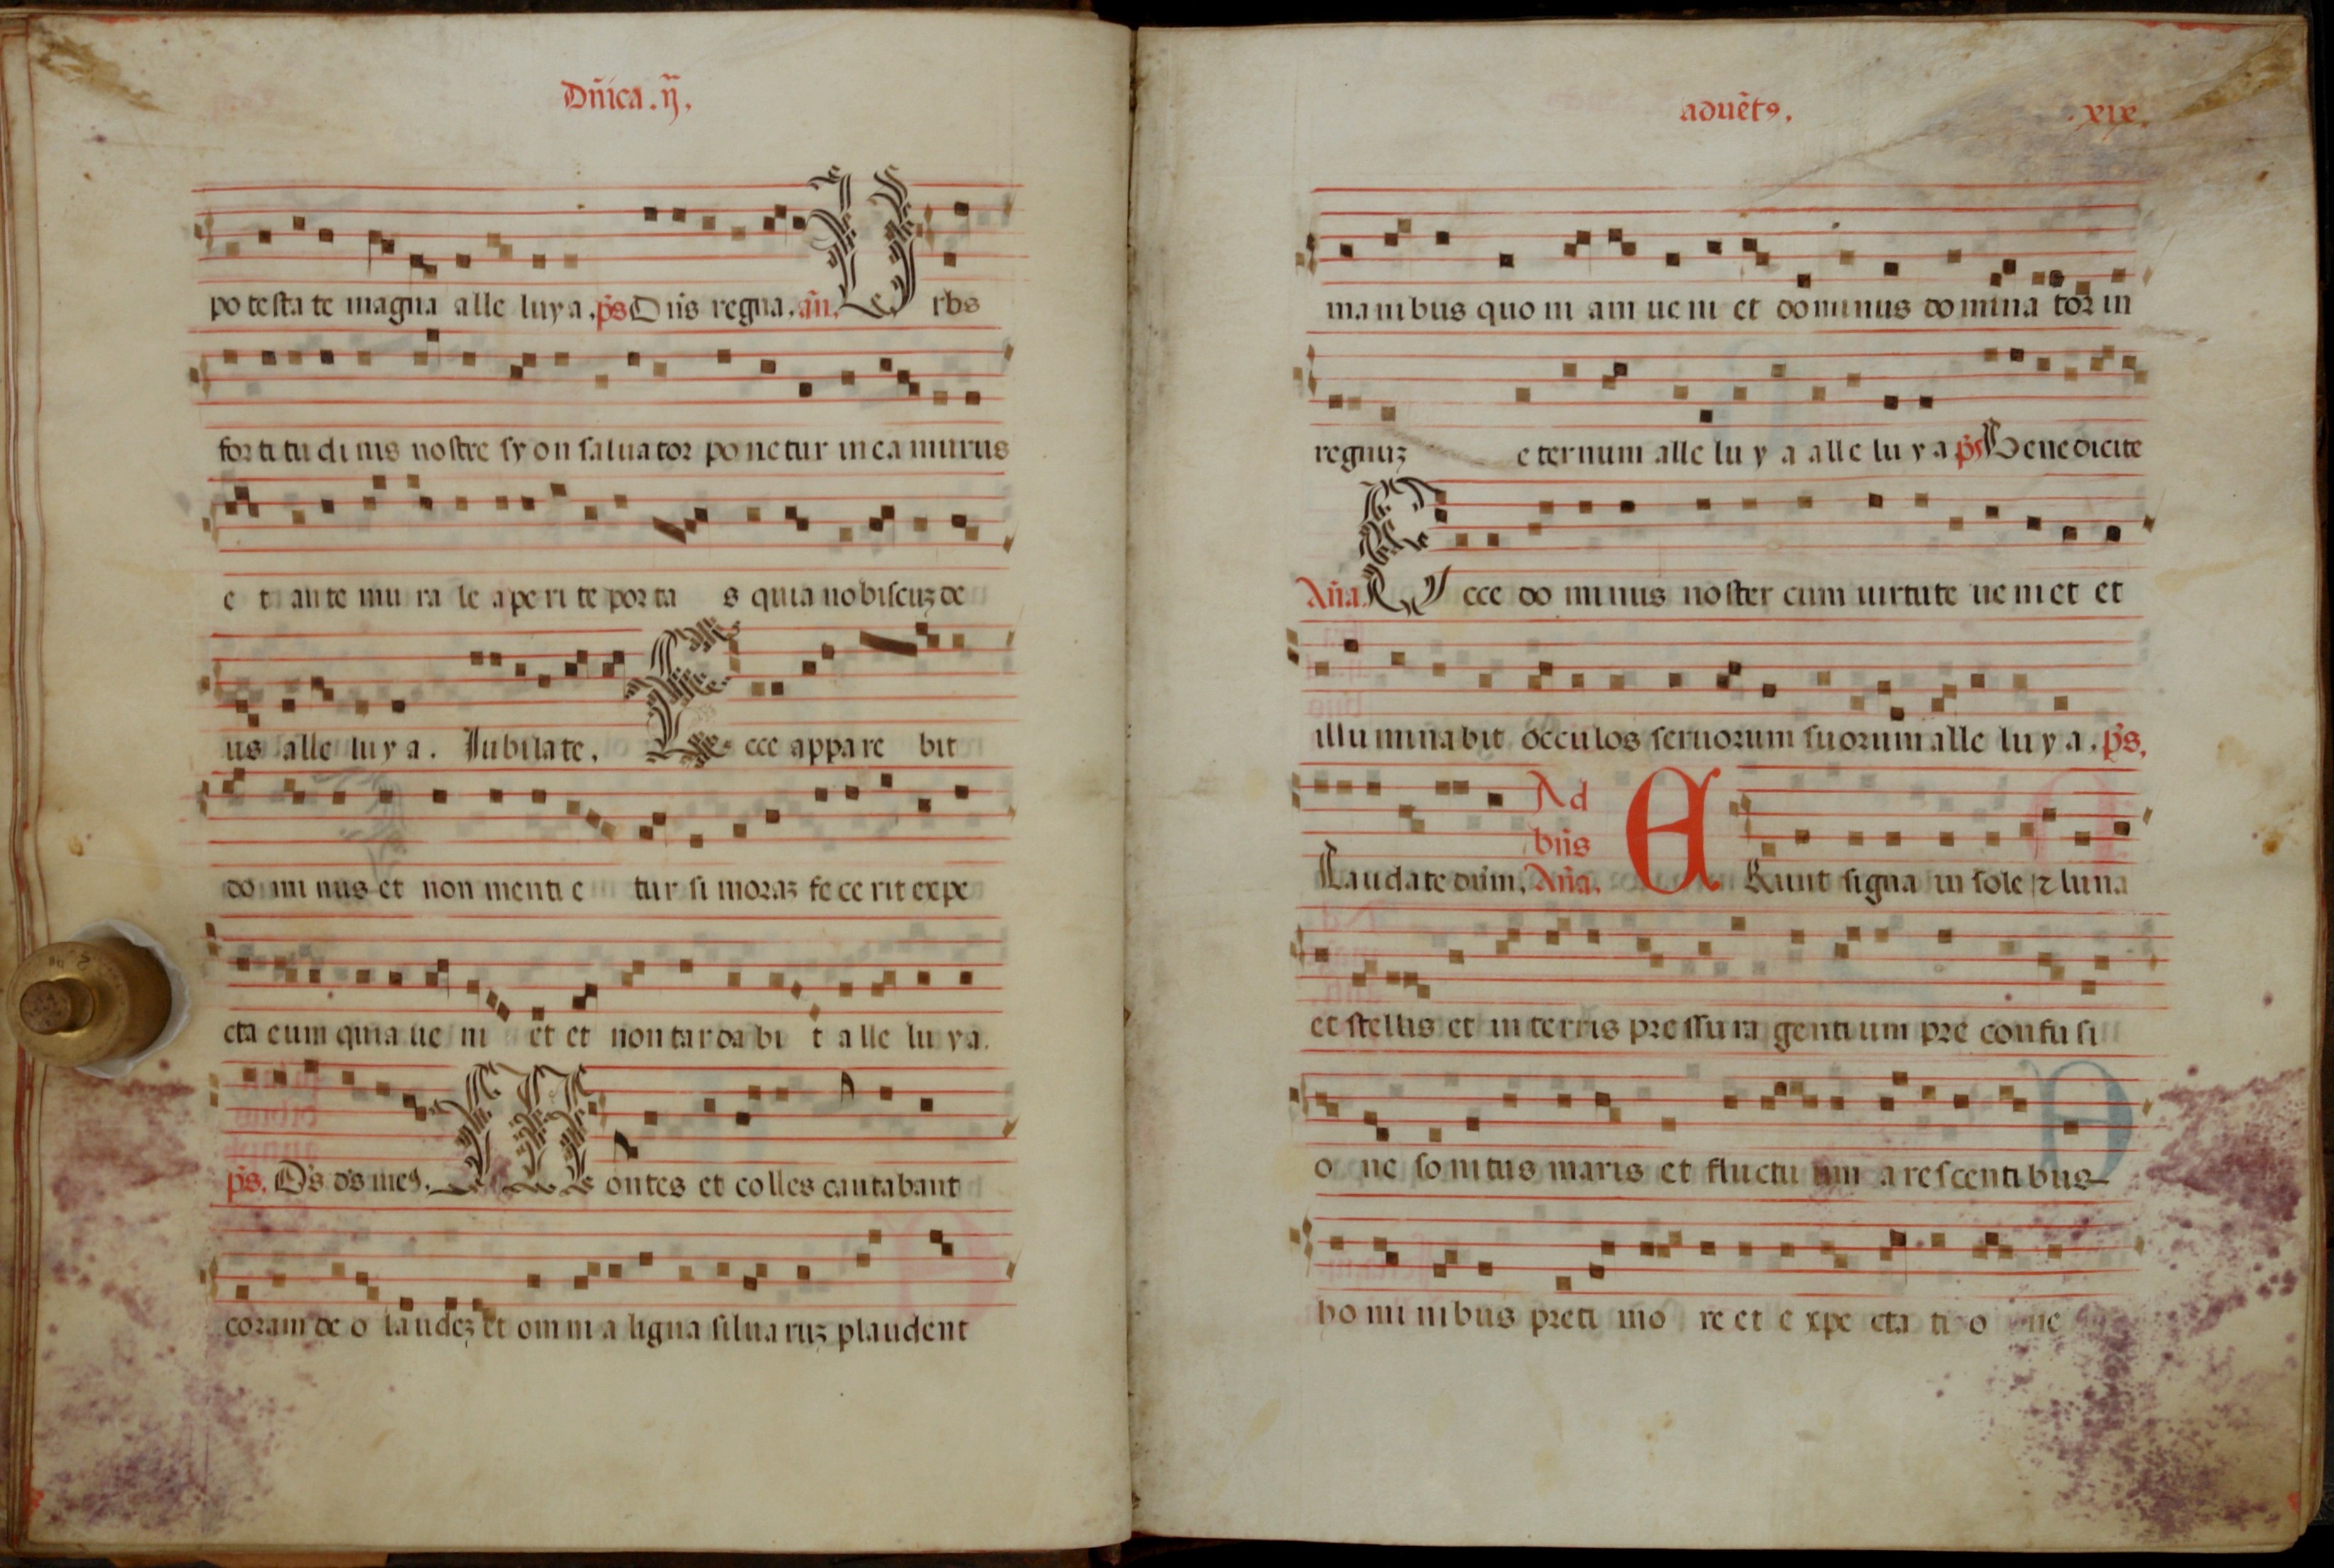 Dñica . ij.
po testa te magna alle luya . ps Dñs regna. añ. U rbs
for ti tu di nis nostre sy on saluator po ne tur in ea murus
e t ante mu ra le a pe ri te por ta s quia nobiscuz de
us alle luy a. Iubilate. E cce appare bit
do mi nus et non menti e tur si moraz fe ce rit expe
cta eum quia ue ni et et non tar da bi t a lle lu ya.
ps. Ds ds meꝰ. M ontes et colles cantabant
coram de o laudez et omni a ligna silua ruz plaudent
aduẽtꝰ. . xix.
manibus quo ni am ueni et dominus domina tor in
regnuz e ternum alle lu y a alle lu y a ps Benedicite
Aña. E cce do minus noster cum uirtute ueniet et
illuminabit occulos seruorum suorum alle lu y a. ps.
Ad
bñs
Laudate dñm. Aña. E Runt signa in sole ⁊ luna
et stellis et in terris pressura gentium pre confusi
o ne sonitus maris et fluctu um arescentibus
ho mi nibus preti mo re et e xpe cta ti o ne